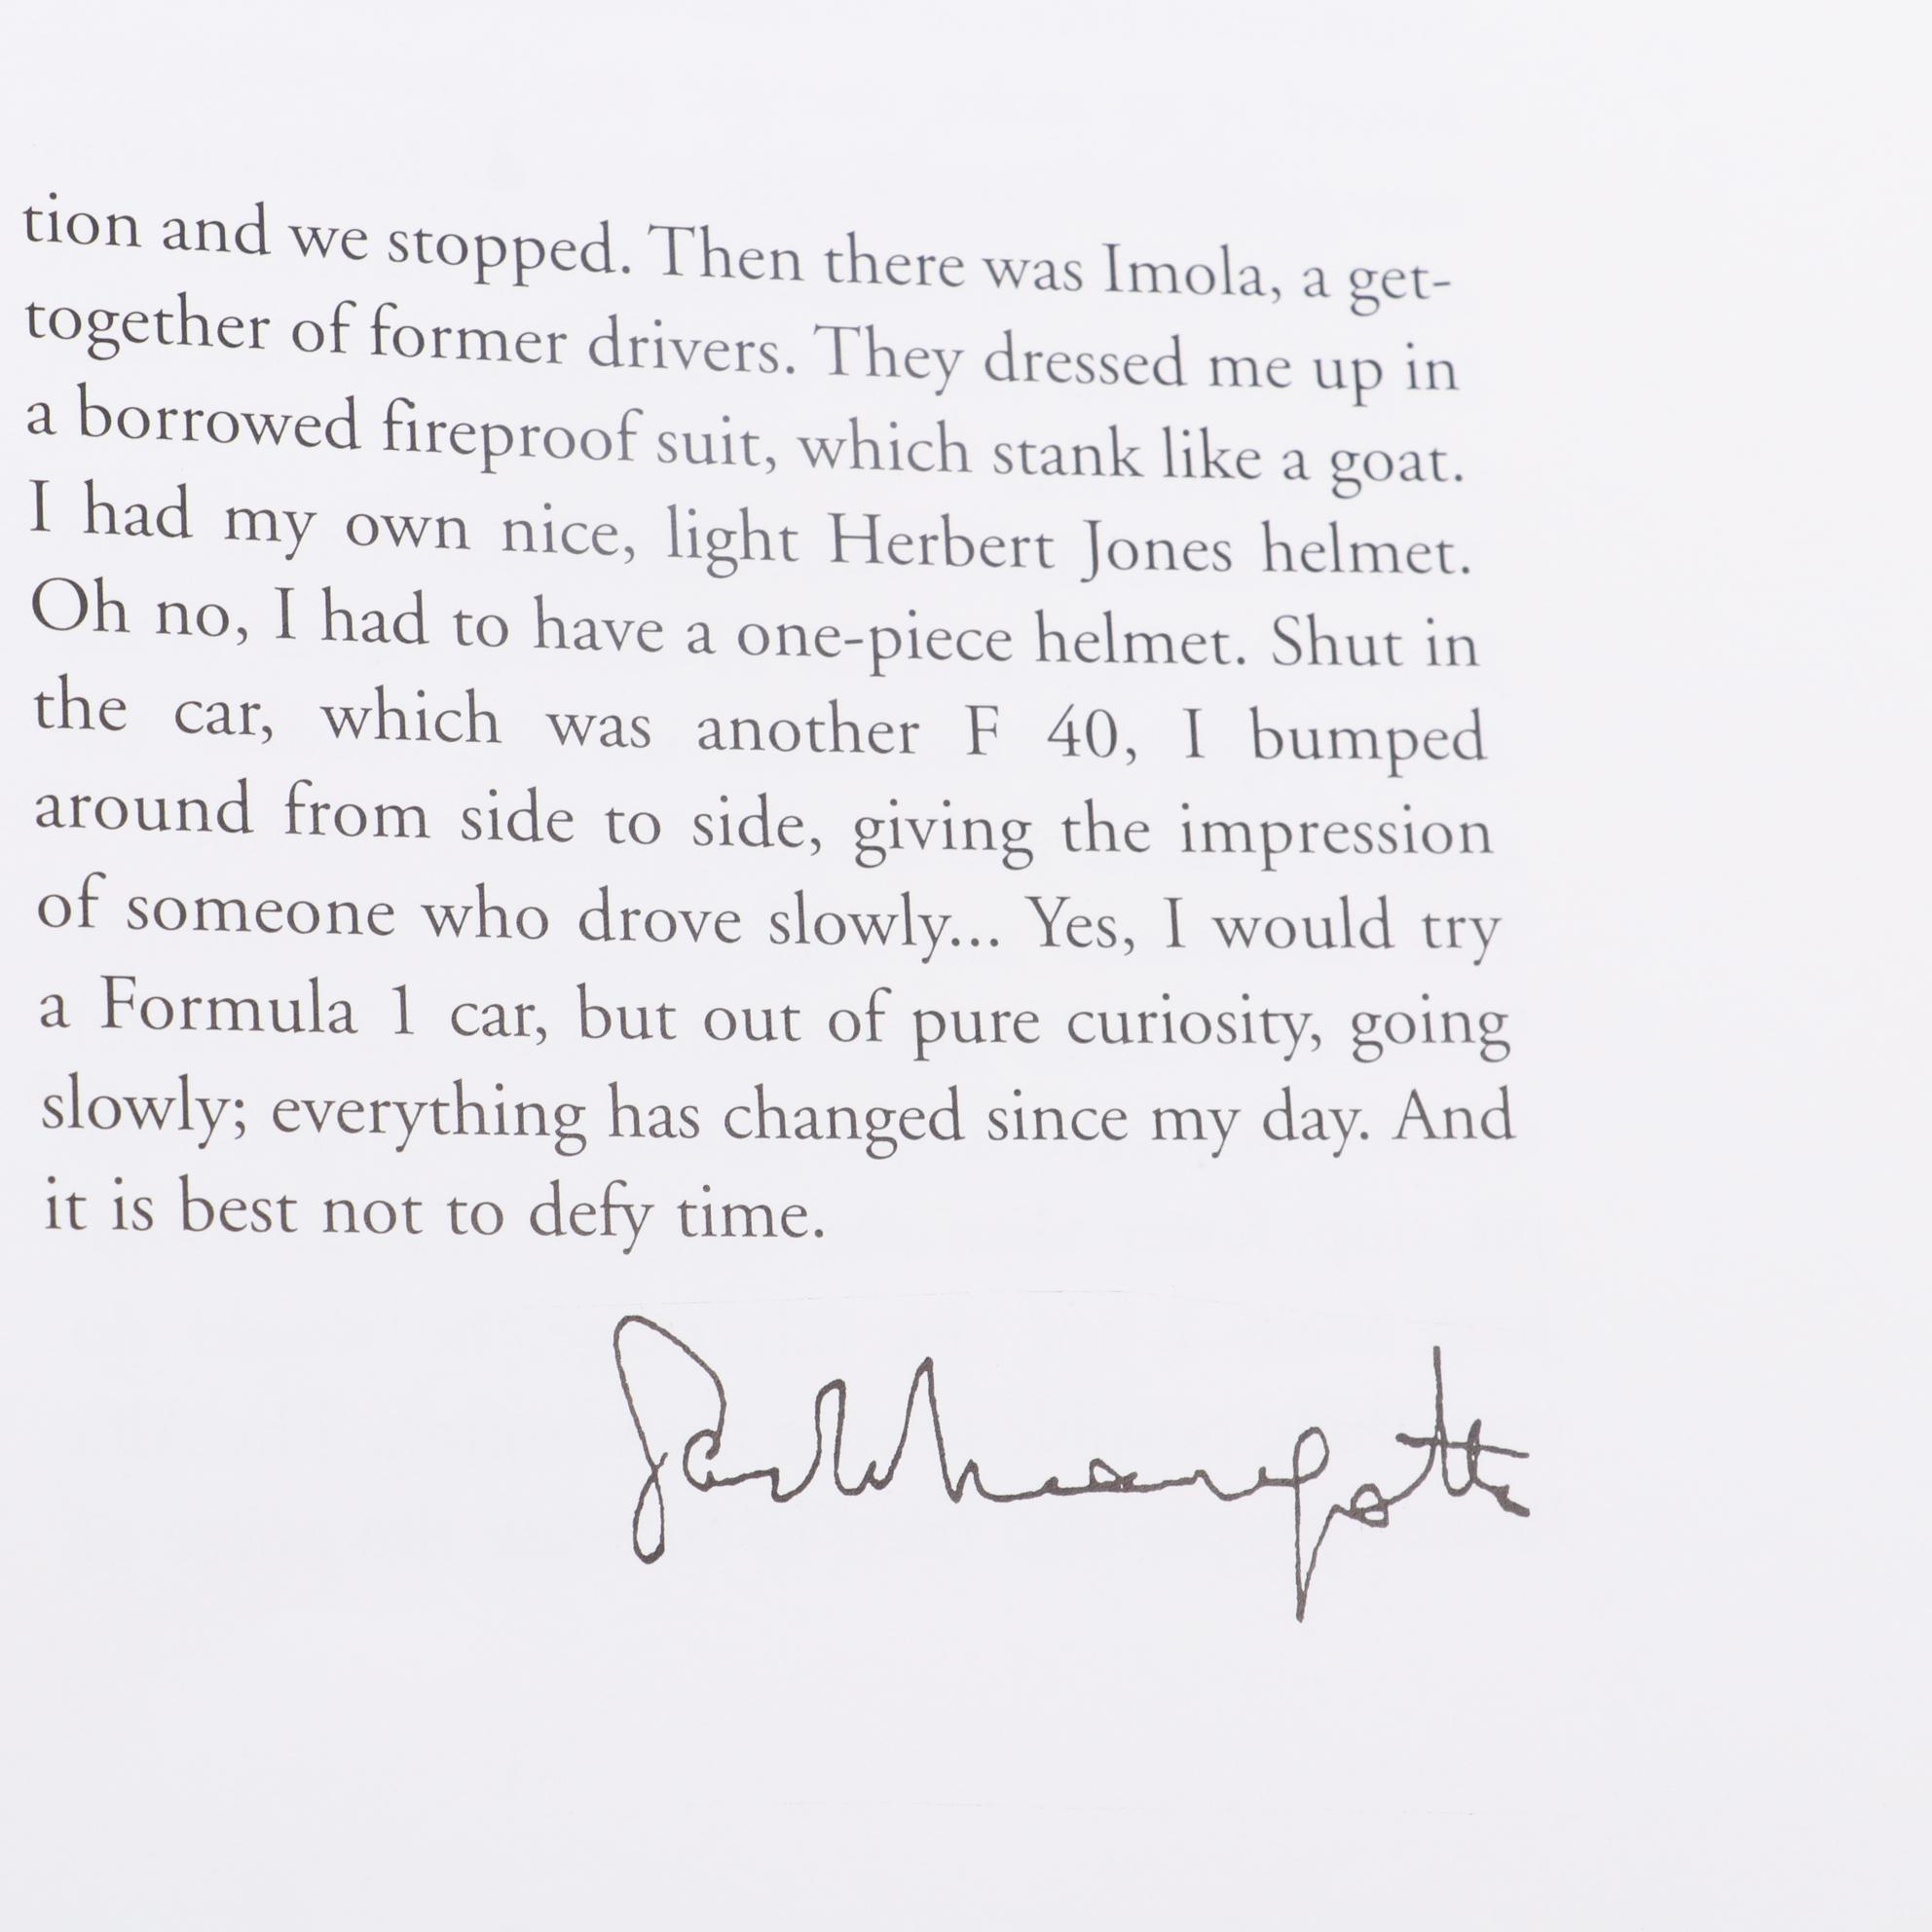 tion and we stopped. Then there was Imola, a get-
together of former drivers. They dressed me up in
a borrowed fireproof suit, which stank like a goat.
I had my own nice, light Herbert Jones helmet.
Oh no, I had to have a one-piece helmet. Shut in
the car, which was another F 40, I bumped
around from side to side, giving the impression
of someone who drove slowly... Yes, I would try
a Formula 1 car, but out of pure curiosity, going
slowly; everything has changed since my day. And
it is best not to defy time.